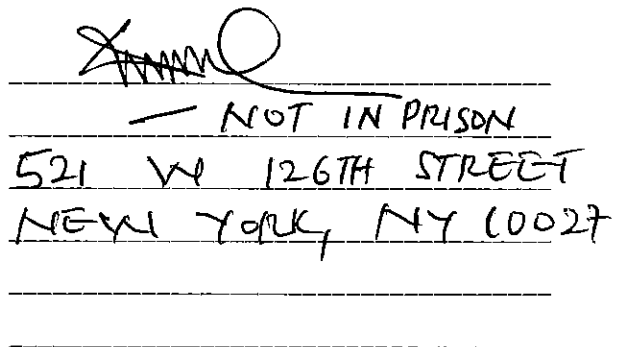 — NOT IN PRISON
521 W 126TH STREET
NEW YORK, NY 10027